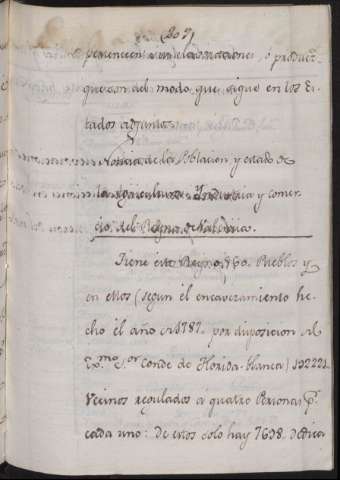 (207)
a sus elavoraciones, ó produc.
que son del modo que sigue en los Es-
tados adjuntos.
Noticia de la Poblacion y estado de
la agricultura Yndustria y comer-
cio del Reyno de Valencia.
Tiene este Reyno Pueblos y
en ellos (segun el encavezamiento he-
cho el año de 1787. por disposicion del
Ex.mo S.or Conde de Florida-blanca) 192221.
Vecinos regulados a quatro Personas p.r
cada uno: De estos solo hay 7698. dedica